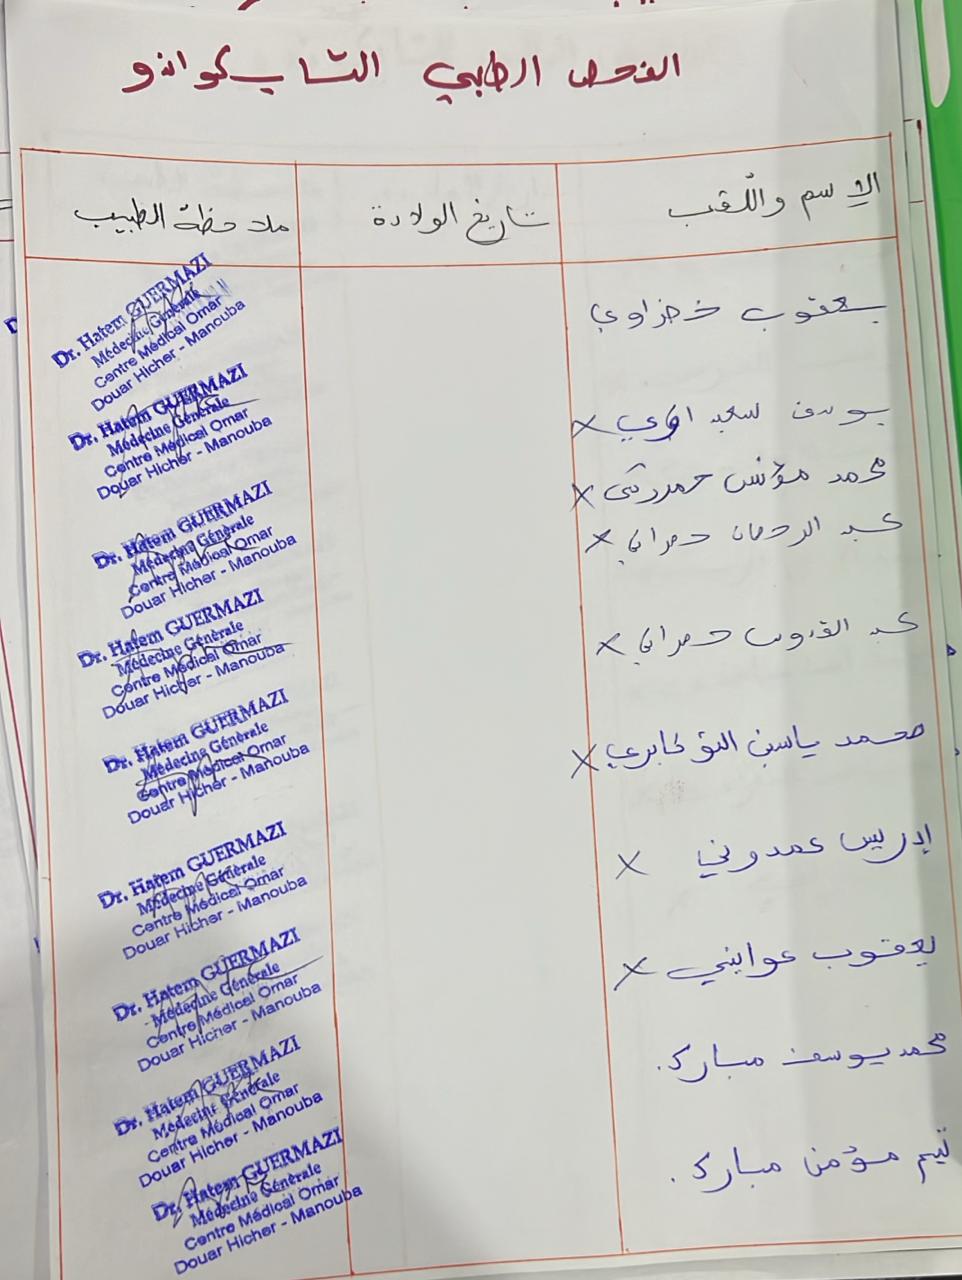 الفحص الطبي التايكواندو
الإسم واللّقب
تاريخ الولادة
ملاحظة الطبيب
يعقوب خضراوي
Dr. Hatem GUERMAZI
Médecine Générale
Centre Médical Omar
Douar Hicher - Manouba
يوسف سعيداوي X
Dr. Hatem GUERMAZI
Médecine Générale
Centre Médical Omar
Douar Hicher - Manouba
محمد مؤنس X
Dr. Hatem GUERMAZI
Médecine Générale
Centre Médical Omar
Douar Hicher - Manouba
عبد الرحمان حمراني X
Dr. Hatem GUERMAZI
Médecine Générale
Centre Médical Omar
Douar Hicher - Manouba
عبد القدوس حمراني X
Dr. Hatem GUERMAZI
Médecine Générale
Centre Médical Omar
Douar Hicher - Manouba
محمد ياسين X
Dr. Hatem GUERMAZI
Médecine Générale
Centre Médical Omar
Douar Hicher - Manouba
إدريس عمدوني X
Dr. Hatem GUERMAZI
Médecine Générale
Centre Médical Omar
Douar Hicher - Manouba
يعقوب عوايني X
Dr. Hatem GUERMAZI
Médecine Générale
Centre Médical Omar
Douar Hicher - Manouba
محمد يوسف مبارك.
Dr. Hatem GUERMAZI
Médecine Générale
Centre Médical Omar
Douar Hicher - Manouba
تيم مؤمن مبارك.